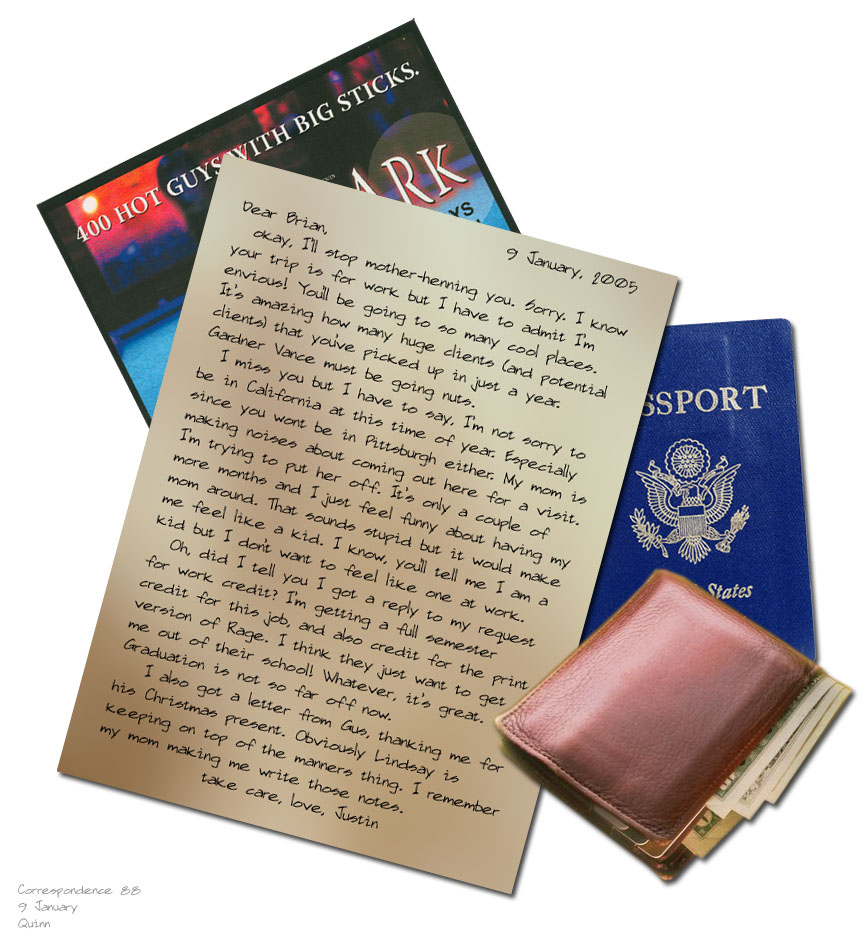 400 HOT GUYS WITH BIG STICKS.
ARK
YS
9 January, 2005
Dear Brian,
okay, I'll stop mother-henning you. Sorry. I know
your trip is for work but I have to admit I'm
envious! You'll be going to so many cool places.
It's amazing how many huge clients (and potential
clients) that you've picked up in just a year.
Gardner Vance must be going nuts.
I miss you but I have to say, I'm not sorry to
be in California at this time of year. Especially
since you wont be in Pittsburgh either. My mom is
making noises about coming out here for a visit.
I'm trying to put her off. It's only a couple of
more months and I just feel funny about having my
mom around. That sounds stupid but it would make
me feel like a kid. I know, you'll tell me I am a
kid but I don't want to feel like one at work.
Oh, did I tell you I got a reply to my request
for work credit? I'm getting a full semester
credit for this job, and also credit for the print
version of Rage. I think they just want to get
me out of their school! Whatever, it's great.
Graduation is not so far off now.
I also got a letter from Gus, thanking me for
his Christmas present. Obviously Lindsay is
keeping on top of the manners thing. I remember
my mom making me write those notes.
take care, love, Justin
SSPORT
States
Correspondence 88
9 January
Quinn